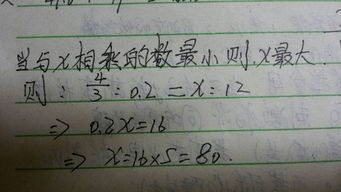 当与x相乘的数最小则x最大.
则: 4/3 : 0.2 = x : 12
⇒ 0.2x=16
⇒ x=16×5=80.